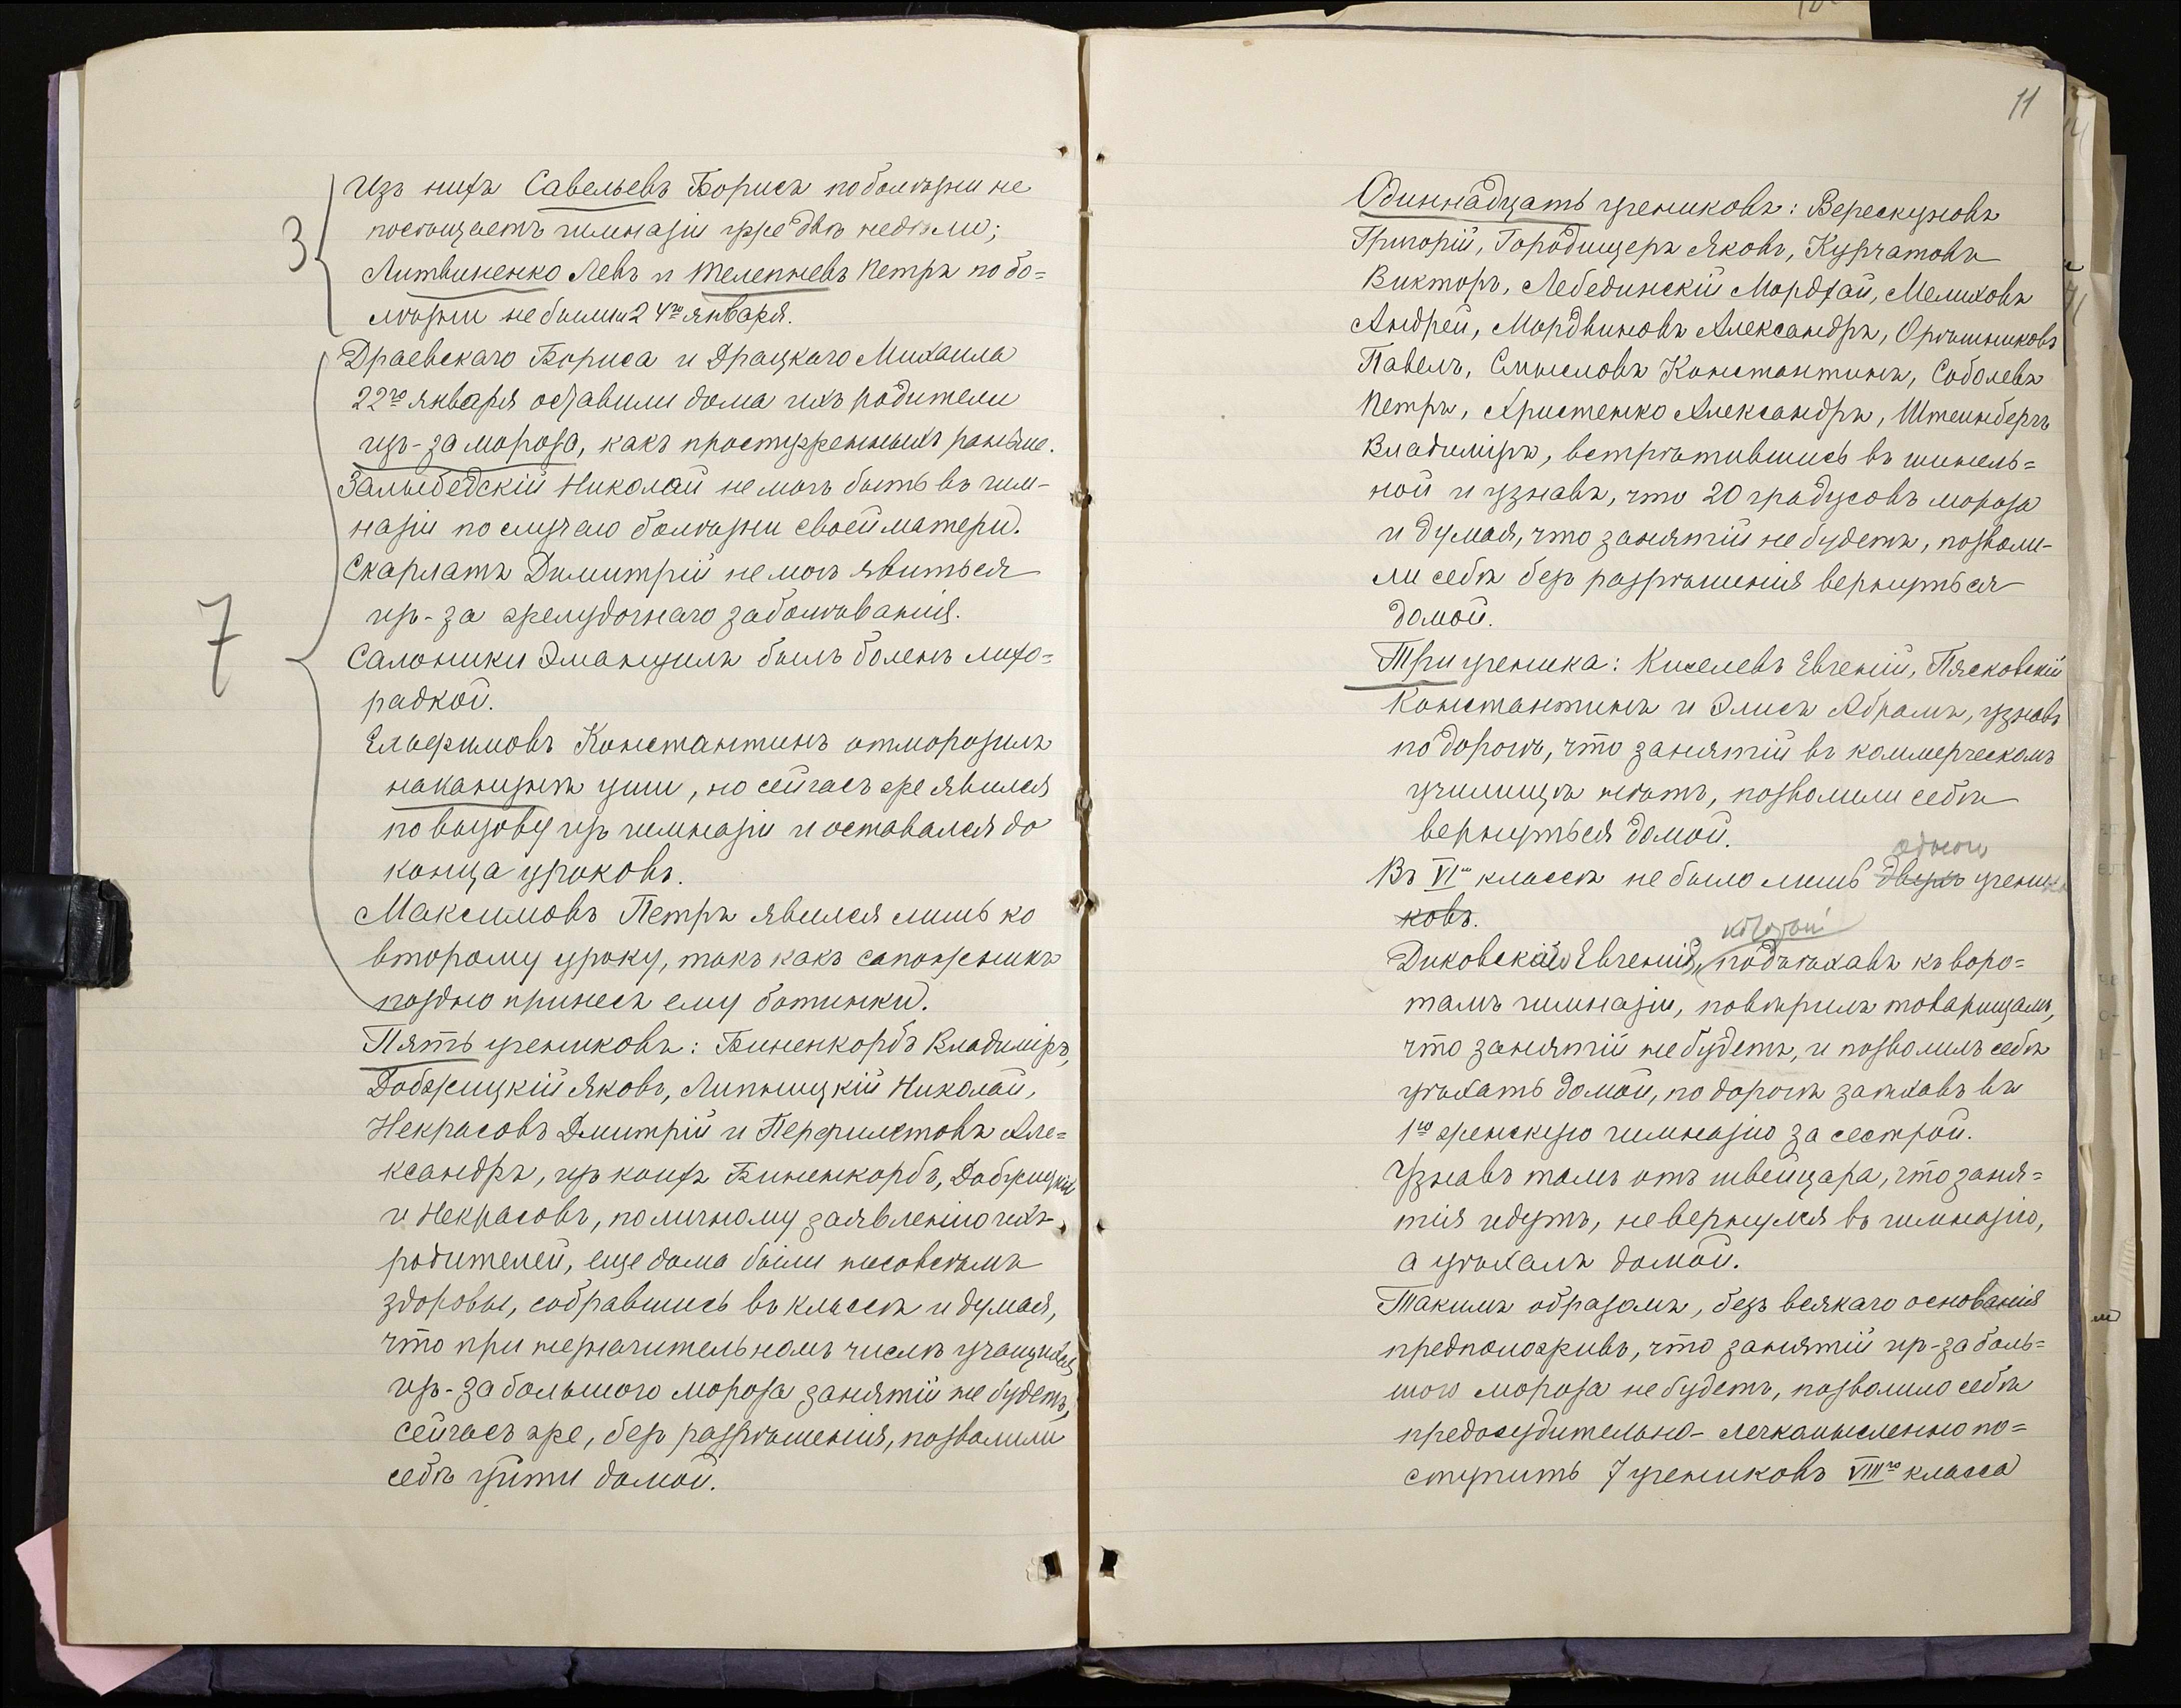 3
Изъ нихъ Савельевъ Борисъ по болѣзни не
посѣщаетъ гимназіи уже двѣ недѣли;
Литвиненко Левъ и Телепневъ Петръ по бо=
лѣзни не были и 24го января.
7
Драевскаго Бориса и Драцкаго Михаила
22го января оставили дома ихъ родители
изъ-за мороза, какъ простуженныхъ раньше.
Залыбедскій Николай не могъ быть въ гим-
назіи по случаю болѣзни своей матери.
Скарлатъ Димитрій не могъ явиться
изъ-за желудочнаго заболѣванія.
Салоники Эмануилъ былъ боленъ лихо=
радкой.
Елафимовъ Константинъ отморозилъ
наканунѣ уши, но сейчасъ же явился
по вызову изъ гимназіи и оставался до
конца уроковъ.
Максимовъ Петръ явился лишь ко
второму уроку, такъ какъ сапожникъ
поздно принесъ ему ботинки.
Пять учениковъ: Биненкорбъ Владиміръ,
Добжицкій Яковъ, Липницкій Николай,
Некрасовъ Дмитрій и Перфилетовъ Але=
ксандръ, изъ коихъ Биненкорбъ, Добжицкій
и Некрасовъ, по личному заявленію ихъ
родителей, еще дома были не совсѣмъ
здоровы, собравшись въ классѣ и думая,
что при незначительномъ числѣ учащихся
изъ-за большого мороза занятій не будетъ,
сейчасъ же, безъ разрѣшенія, позволили
себѣ уйти домой.
11
Одиннадцать учениковъ: Верескуновъ
Григорій, Городищеръ Яковъ, Курчатовъ
Викторъ, Лебединскій Мордхай, Мелиховъ
Андрей, Мордвиновъ Александръ, Орѣшниковъ
Павелъ, Смысловъ Константинъ, Соболевъ
Петръ, Христенко Александръ, Штейнбергъ
Владиміръ, встрѣтившись въ шинель=
ной и узнавъ, что 20 градусовъ мороза
и думая, что занятій не будетъ, позволи-
ли себѣ безъ разрѣшенія вернуться
домой.
Три ученика: Киселевъ Евгеній, Пясковскій
Константинъ и Элисъ Абрамъ, узнавъ
по дорогѣ, что занятій въ коммерческомъ
училищѣ нѣтъ, позволили себѣ
вернуться домой.
одного
Въ VIмъ классѣ не было лишь двухъ учени
ковъ.
который
Диковскій Евгеній, подъѣхавъ къ воро=
тамъ гимназіи, повѣрилъ товарищамъ,
что занятій не будетъ, и позволилъ себѣ
уѣхать домой, по дорогѣ заѣхавъ въ
1ю женскую гимназію за сестрой.
Узнавъ тамъ отъ швейцара, что заня=
тія идутъ, не вернулся въ гимназію,
а уѣхалъ домой.
Такимъ образомъ, безъ всякаго основанія
предположивъ, что занятій изъ-за боль=
шого мороза не будетъ, позволило себѣ
предосудительно-легкомысленно по=
ступить 7 учениковъ VIIIго класса